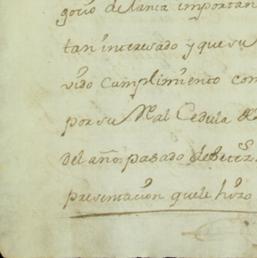 gocio de tanta importan
tan interesado y que su
vido Cumplimiento con
por su Rl. Cedula de
del año pasado de
presentacion que le hizo